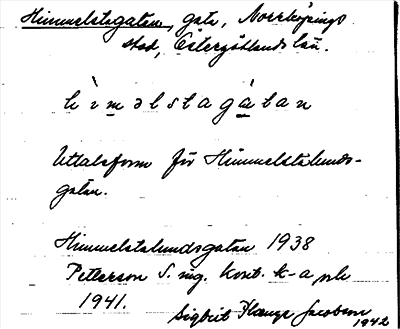 Himmelstagatan, gata, Norrköpings
stad, Östergötlands län.
h ì m̲ ə l s t a g à̲ t a n
Uttalsform för Himmelstalunds-
gatan.
Himmelstalundsgatan 1938
Petterson S. ing. kont. k-a
1941.
Sigbrit Plænge Jacobson
1942